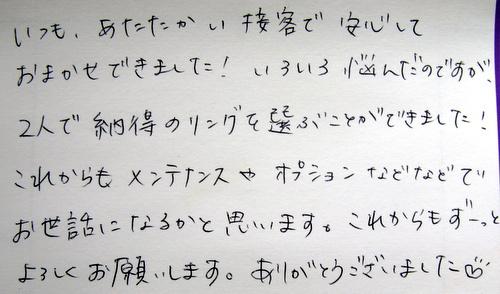 いつも、あたたかい接客で安心して
おまかせできました！いろいろ悩んだのですが、
2人で納得のリングを選ぶことができました！
これからもメンテナンスやオプションなどなどで
お世話になるかと思います。これからもずーっと
よろしくお願いします。ありがとうございました♡